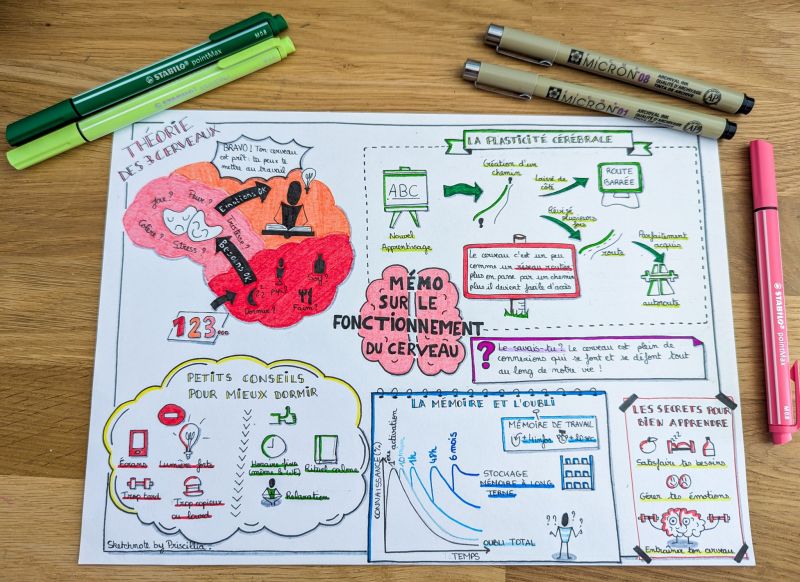 STABILO pointMax
MICRON 08
ARCHIVAL INK
AP
MICRON 01
ARCHIVAL INK
AP
STABILO pointMax
THÉORIE
DES 3 CERVEAUX
BRAVO! Ton cerveau
est prêt : tu peux te
mettre au travail
Emotions OK
Joie ?
Peur ?
Colère ?
Stress ?
Tristesse ?
Besoins OK
Dormir ?
Pipi ?
Soif ?
Faim ?
1 2 3 ...
MÉMO
SUR LE
FONCTIONNEMENT
DU CERVEAU
LA PLASTICITÉ CÉRÉBRALE
ABC
Nouvel
Apprentissage
Création d'un
chemin
Laissé de
côté
ROUTE
BARRÉE
Révisé
plusieurs
fois
route
Parfaitement
acquis
autoroute
Le cerveau c'est un peu
comme un réseau routier
plus on passe par un chemin
plus il devient facile d'accès
? Le savais-tu ? Le cerveau est plein de
connexions qui se font et se défont tout
au long de notre vie !
PETITS CONSEILS
POUR MIEUX DORMIR
Écrans
Lumière forte
Trop tard
Trop copieux
ou lourd
Horaire fixe
(même le WE)
Rituel calme
Relaxation
Sketchnote by Priscillia
LA MÉMOIRE ET L'OUBLI
CONNAISSANCE (%)
1ère activation
10 min
1h
48h
6 mois
MÉMOIRE DE TRAVAIL
STOCKAGE
MÉMOIRE À LONG
TERME
OUBLI TOTAL
TEMPS
LES SECRETS POUR
BIEN APPRENDRE
Satisfaire tes besoins
Gérer tes émotions
Entraîner ton cerveau